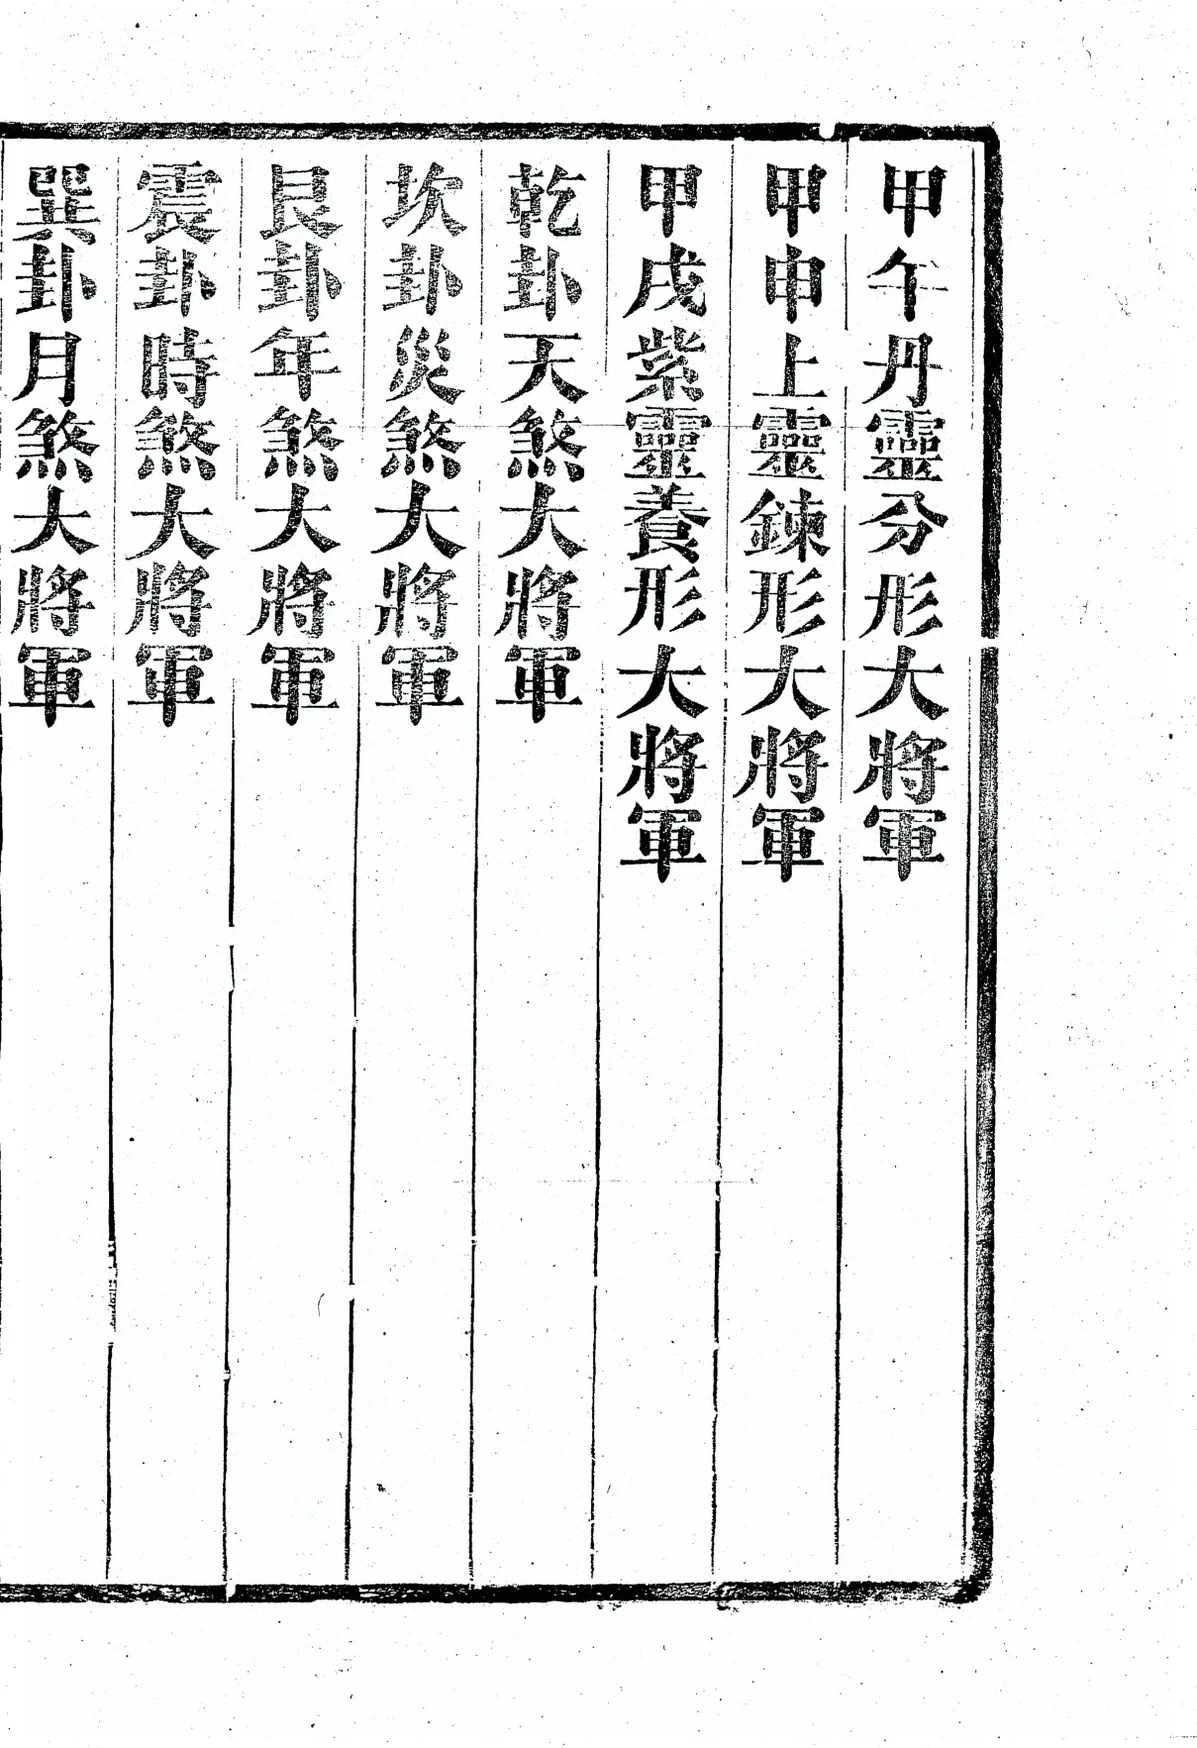 甲午丹靈分形大將軍
甲申上靈鍊形大將軍
甲戌紫靈養形大將軍
乾卦天煞大將軍
坎卦災煞大將軍
艮卦年煞大將軍
震卦時煞大將軍
巽卦月煞大將軍